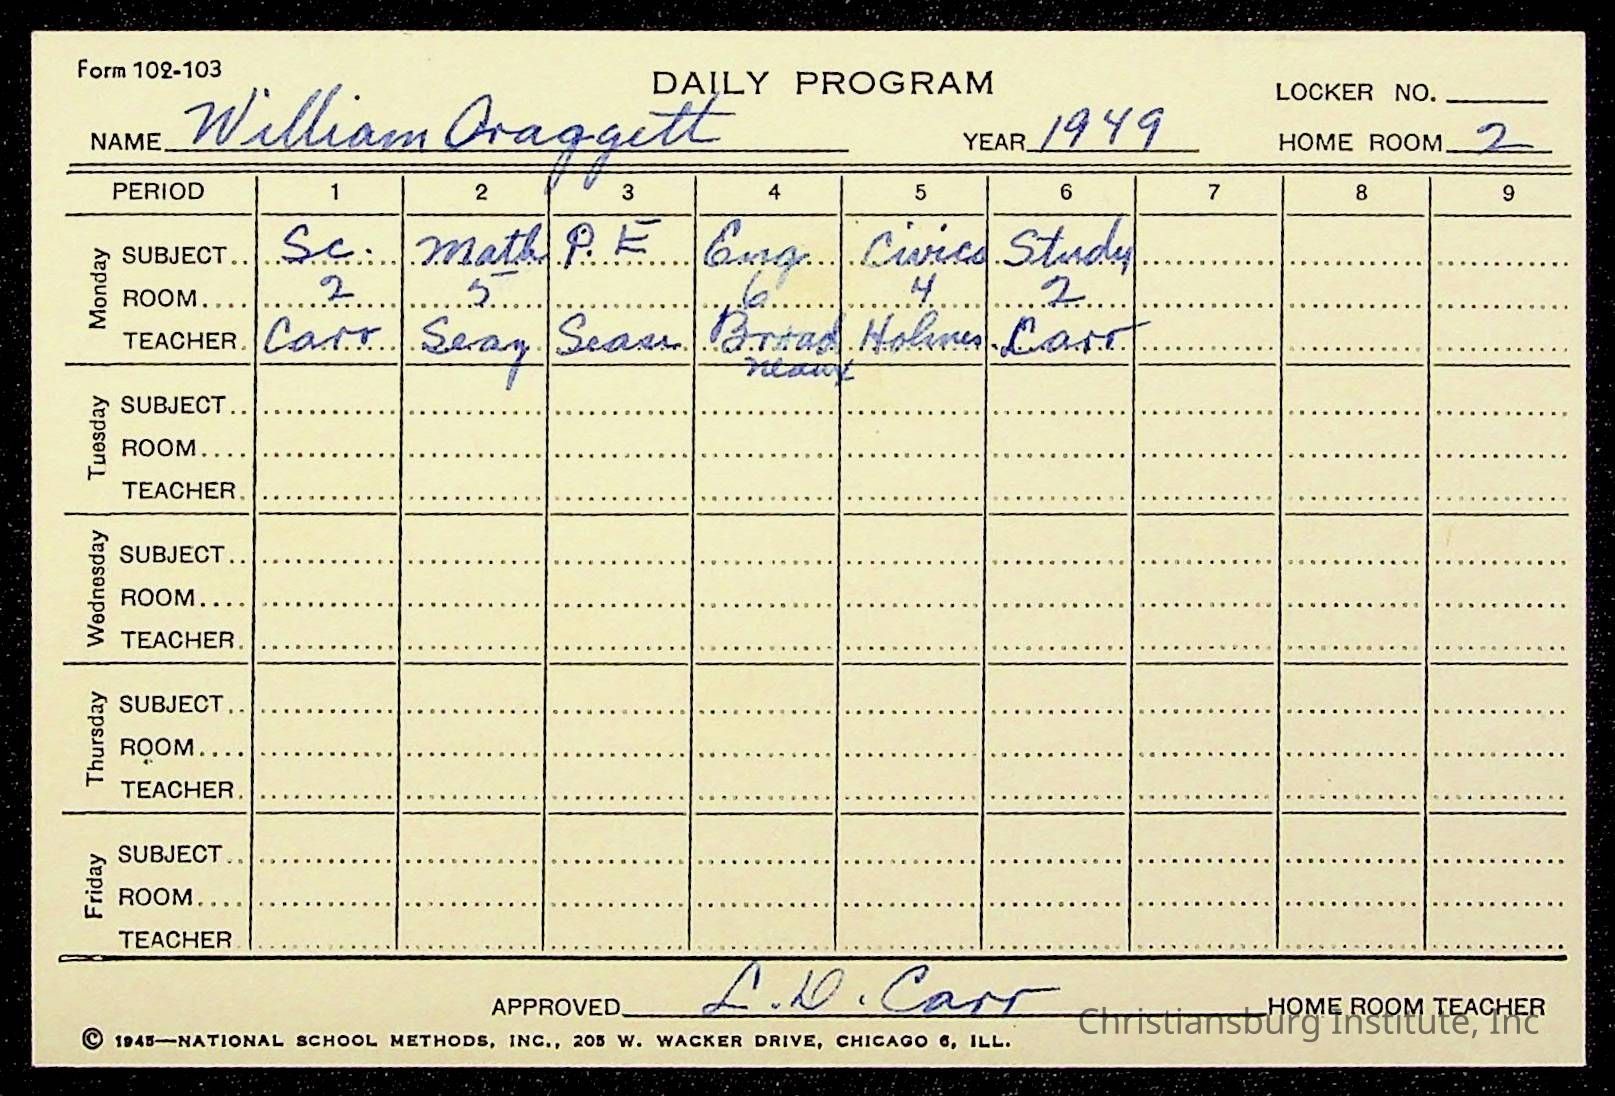 Form 102-103
DAILY PROGRAM
LOCKER NO.
NAME William Craggett YEAR 1949 HOME ROOM 2
PERIOD 1 2 3 4 5 6 7 8 9
Monday
SUBJECT Sc. Math P. E Eng Civics Study
ROOM 2 5 6 4 2
TEACHER Carr Seay Sease Broad Holmes Carr
neaux
Tuesday
SUBJECT
ROOM
TEACHER
Wednesday
SUBJECT
ROOM
TEACHER
Thursday
SUBJECT
ROOM
TEACHER
Friday
SUBJECT
ROOM
TEACHER
APPROVED L. D. Carr HOME ROOM TEACHER
Christiansburg Institute, Inc
© 1945—NATIONAL SCHOOL METHODS, INC., 205 W. WACKER DRIVE, CHICAGO 6, ILL.